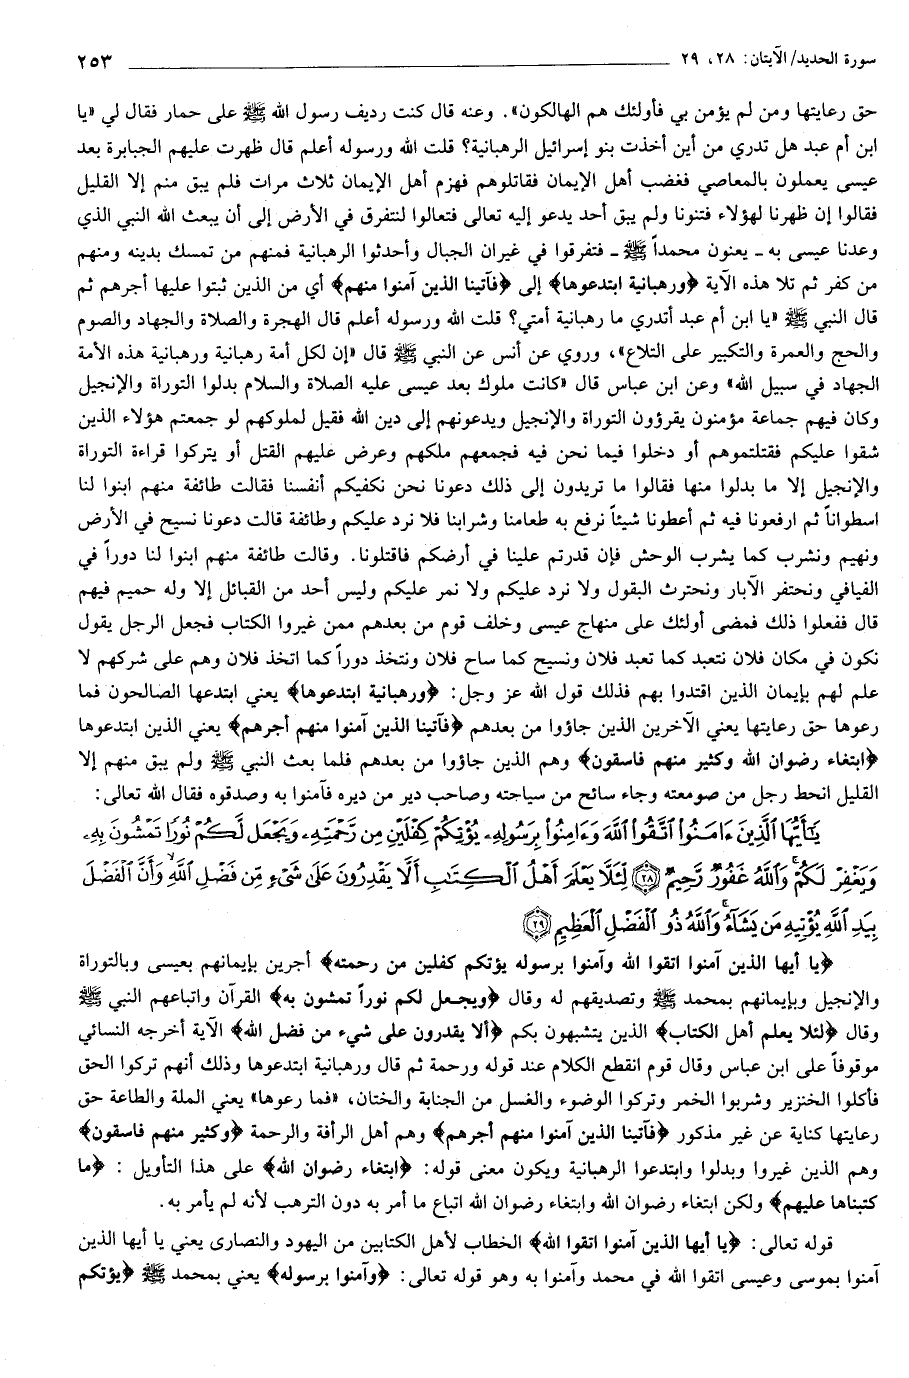 سورة الحديد/ الآيتان: ٢٨، ٢٩ ٢٥٣
حق رعايتها ومن لم يؤمن بي فأولئك هم الهالكون». وعنه قال كنت رديف رسول الله ﷺ على حمار فقال لي «يا
ابن أم عبد هل تدري من أين أخذت بنو إسرائيل الرهبانية؟ قلت الله ورسوله أعلم قال ظهرت عليهم الجبابرة بعد
عيسى يعملون بالمعاصي فغضب أهل الإيمان فقاتلوهم فهزم أهل الإيمان ثلاث مرات فلم يبق منم إلا القليل
فقالوا إن ظهرنا لهؤلاء فتنونا ولم يبق أحد يدعو إليه تعالى فتعالوا لنتفرق في الأرض إلى أن يبعث الله النبي الذي
وعدنا عيسى به ـ يعنون محمداً ﷺ ـ فتفرقوا في غيران الجبال وأحدثوا الرهبانية فمنهم من تمسك بدينه ومنهم
من كفر ثم تلا هذه الآية ﴿ورهبانية ابتدعوها﴾ إلى ﴿فآتينا الذين آمنوا منهم﴾ أي من الذين ثبتوا عليها أجرهم ثم
قال النبي ﷺ «يا ابن أم عبد أتدري ما رهبانية أمتي؟ قلت الله ورسوله أعلم قال الهجرة والصلاة والجهاد والصوم
والحج والعمرة والتكبير على التلاع»، وروي عن أنس عن النبي ﷺ قال «إن لكل أمة رهبانية ورهبانية هذه الأمة
الجهاد في سبيل الله» وعن ابن عباس قال «كانت ملوك بعد عيسى عليه الصلاة والسلام بدلوا التوراة والإنجيل
وكان فيهم جماعة مؤمنون يقرؤون التوراة والإنجيل ويدعونهم إلى دين الله فقيل لملوكهم لو جمعتم هؤلاء الذين
شقوا عليكم فقتلتموهم أو دخلوا فيما نحن فيه فجمعهم ملكهم وعرض عليهم القتل أو يتركوا قراءة التوراة
والإنجيل إلا ما بدلوا منها فقالوا ما تريدون إلى ذلك دعونا نحن نكفيكم أنفسنا فقالت طائفة منهم ابنوا لنا
اسطواناً ثم ارفعونا فيه ثم أعطونا شيئاً نرفع به طعامنا وشرابنا فلا نرد عليكم وطائفة قالت دعونا نسيح في الأرض
ونهيم ونشرب كما يشرب الوحش فإن قدرتم علينا في أرضكم فاقتلونا. وقالت طائفة منهم ابنوا لنا دوراً في
الفيافي ونحتفر الآبار ونحترث البقول ولا نرد عليكم ولا نمر عليكم وليس أحد من القبائل إلا وله حميم فيهم
قال ففعلوا ذلك فمضى أولئك على منهاج عيسى وخلف قوم من بعدهم ممن غيروا الكتاب فجعل الرجل يقول
نكون في مكان فلان نتعبد كما تعبد فلان ونسيح كما ساح فلان ونتخذ دوراً كما اتخذ فلان وهم على شركهم لا
علم لهم بإيمان الذين اقتدوا بهم فذلك قول الله عز وجل: ﴿ورهبانية ابتدعوها﴾ يعني ابتدعها الصالحون فما
رعوها حق رعايتها يعني الآخرين الذين جاؤوا من بعدهم ﴿فآتينا الذين آمنوا منهم أجرهم﴾ يعني الذين ابتدعوها
﴿ابتغاء رضوان الله وكثير منهم فاسقون﴾ وهم الذين جاؤوا من بعدهم فلما بعث النبي ﷺ ولم يبق منهم إلا
القليل انحط رجل من صومعته وجاء سائح من سياحته وصاحب دير من ديره فآمنوا به وصدقوه فقال الله تعالى:
يَٰٓأَيُّهَا ٱلَّذِينَ ءَامَنُوا۟ ٱتَّقُوا۟ ٱللَّهَ وَءَامِنُوا۟ بِرَسُولِهِۦ يُؤْتِكُمْ كِفْلَيْنِ مِن رَّحْمَتِهِۦ وَيَجْعَل لَّكُمْ نُورًا تَمْشُونَ بِهِۦ
وَيَغْفِرْ لَكُمْ ۚ وَٱللَّهُ غَفُورٌ رَّحِيمٌ ﴿٢٨﴾ لِّئَلَّا يَعْلَمَ أَهْلُ ٱلْكِتَٰبِ أَلَّا يَقْدِرُونَ عَلَىٰ شَىْءٍ مِّن فَضْلِ ٱللَّهِ ۙ وَأَنَّ ٱلْفَضْلَ
بِيَدِ ٱللَّهِ يُؤْتِيهِ مَن يَشَآءُ ۚ وَٱللَّهُ ذُو ٱلْفَضْلِ ٱلْعَظِيمِ ﴿٢٩﴾
﴿يا أيها الذين آمنوا اتقوا الله وآمنوا برسوله يؤتكم كفلين من رحمته﴾ أجرين بإيمانهم بعيسى وبالتوراة
والإنجيل وبإيمانهم بمحمد ﷺ وتصديقهم له وقال ﴿ويجعل لكم نوراً تمشون به﴾ القرآن واتباعهم النبي ﷺ
وقال ﴿لئلا يعلم أهل الكتاب﴾ الذين يتشبهون بكم ﴿ألا يقدرون على شيء من فضل الله﴾ الآية أخرجه النسائي
موقوفاً على ابن عباس وقال قوم انقطع الكلام عند قوله ورحمة ثم قال ورهبانية ابتدعوها وذلك أنهم تركوا الحق
فأكلوا الخنزير وشربوا الخمر وتركوا الوضوء والغسل من الجنابة والختان، «فما رعوها» يعني الملة والطاعة حق
رعايتها كناية عن غير مذكور ﴿فآتينا الذين آمنوا منهم أجرهم﴾ وهم أهل الرأفة والرحمة ﴿وكثير منهم فاسقون﴾
وهم الذين غيروا وبدلوا وابتدعوا الرهبانية ويكون معنى قوله: ﴿ابتغاء رضوان الله﴾ على هذا التأويل : ﴿ما
كتبناها عليهم﴾ ولكن ابتغاء رضوان الله وابتغاء رضوان الله اتباع ما أمر به دون الترهب لأنه لم يأمر به.
قوله تعالى: ﴿يا أيها الذين آمنوا اتقوا الله﴾ الخطاب لأهل الكتابين من اليهود والنصارى يعني يا أيها الذين
آمنوا بموسى وعيسى اتقوا الله في محمد وآمنوا به وهو قوله تعالى: ﴿وآمنوا برسوله﴾ يعني بمحمد ﷺ ﴿يؤتكم